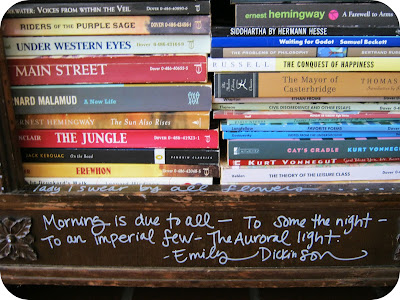 WATER: VOICES FROM WITHIN THE VEIL DOVER
RIDERS OF THE PURPLE SAGE DOVER
UNDER WESTERN EYES Dover
MAIN STREET Dover 0-486-40655-5
NARD MALAMUD A New Life
ERNEST HEMINGWAY The Sun Also Rises
NCLAIR THE JUNGLE Dover 0-486-41923-1
JACK KEROUAC On the Road PENGUIN CLASSICS
EREWHON Dover
ernest hemingway A Farewell to Arms
SIDDHARTHA BY HERMANN HESSE
Waiting for Godot Samuel Beckett
THE PROBLEMS OF PHILOSOPHY BERTRAND
RUSSELL THE CONQUEST OF HAPPINESS
The Mayor of Casterbridge THOMAS
ETHAN FROME
CIVIL DISOBEDIENCE AND OTHER ESSAYS
Longfellow FAVORITE POEMS
CAT'S CRADLE KURT VONNEGUT
KURT VONNEGUT
Veblen THE THEORY OF THE LEISURE CLASS
lady i swear by all flowers
Morning is due to all — To some the night —
To an imperial few — The Auroral light.
-Emily Dickinson